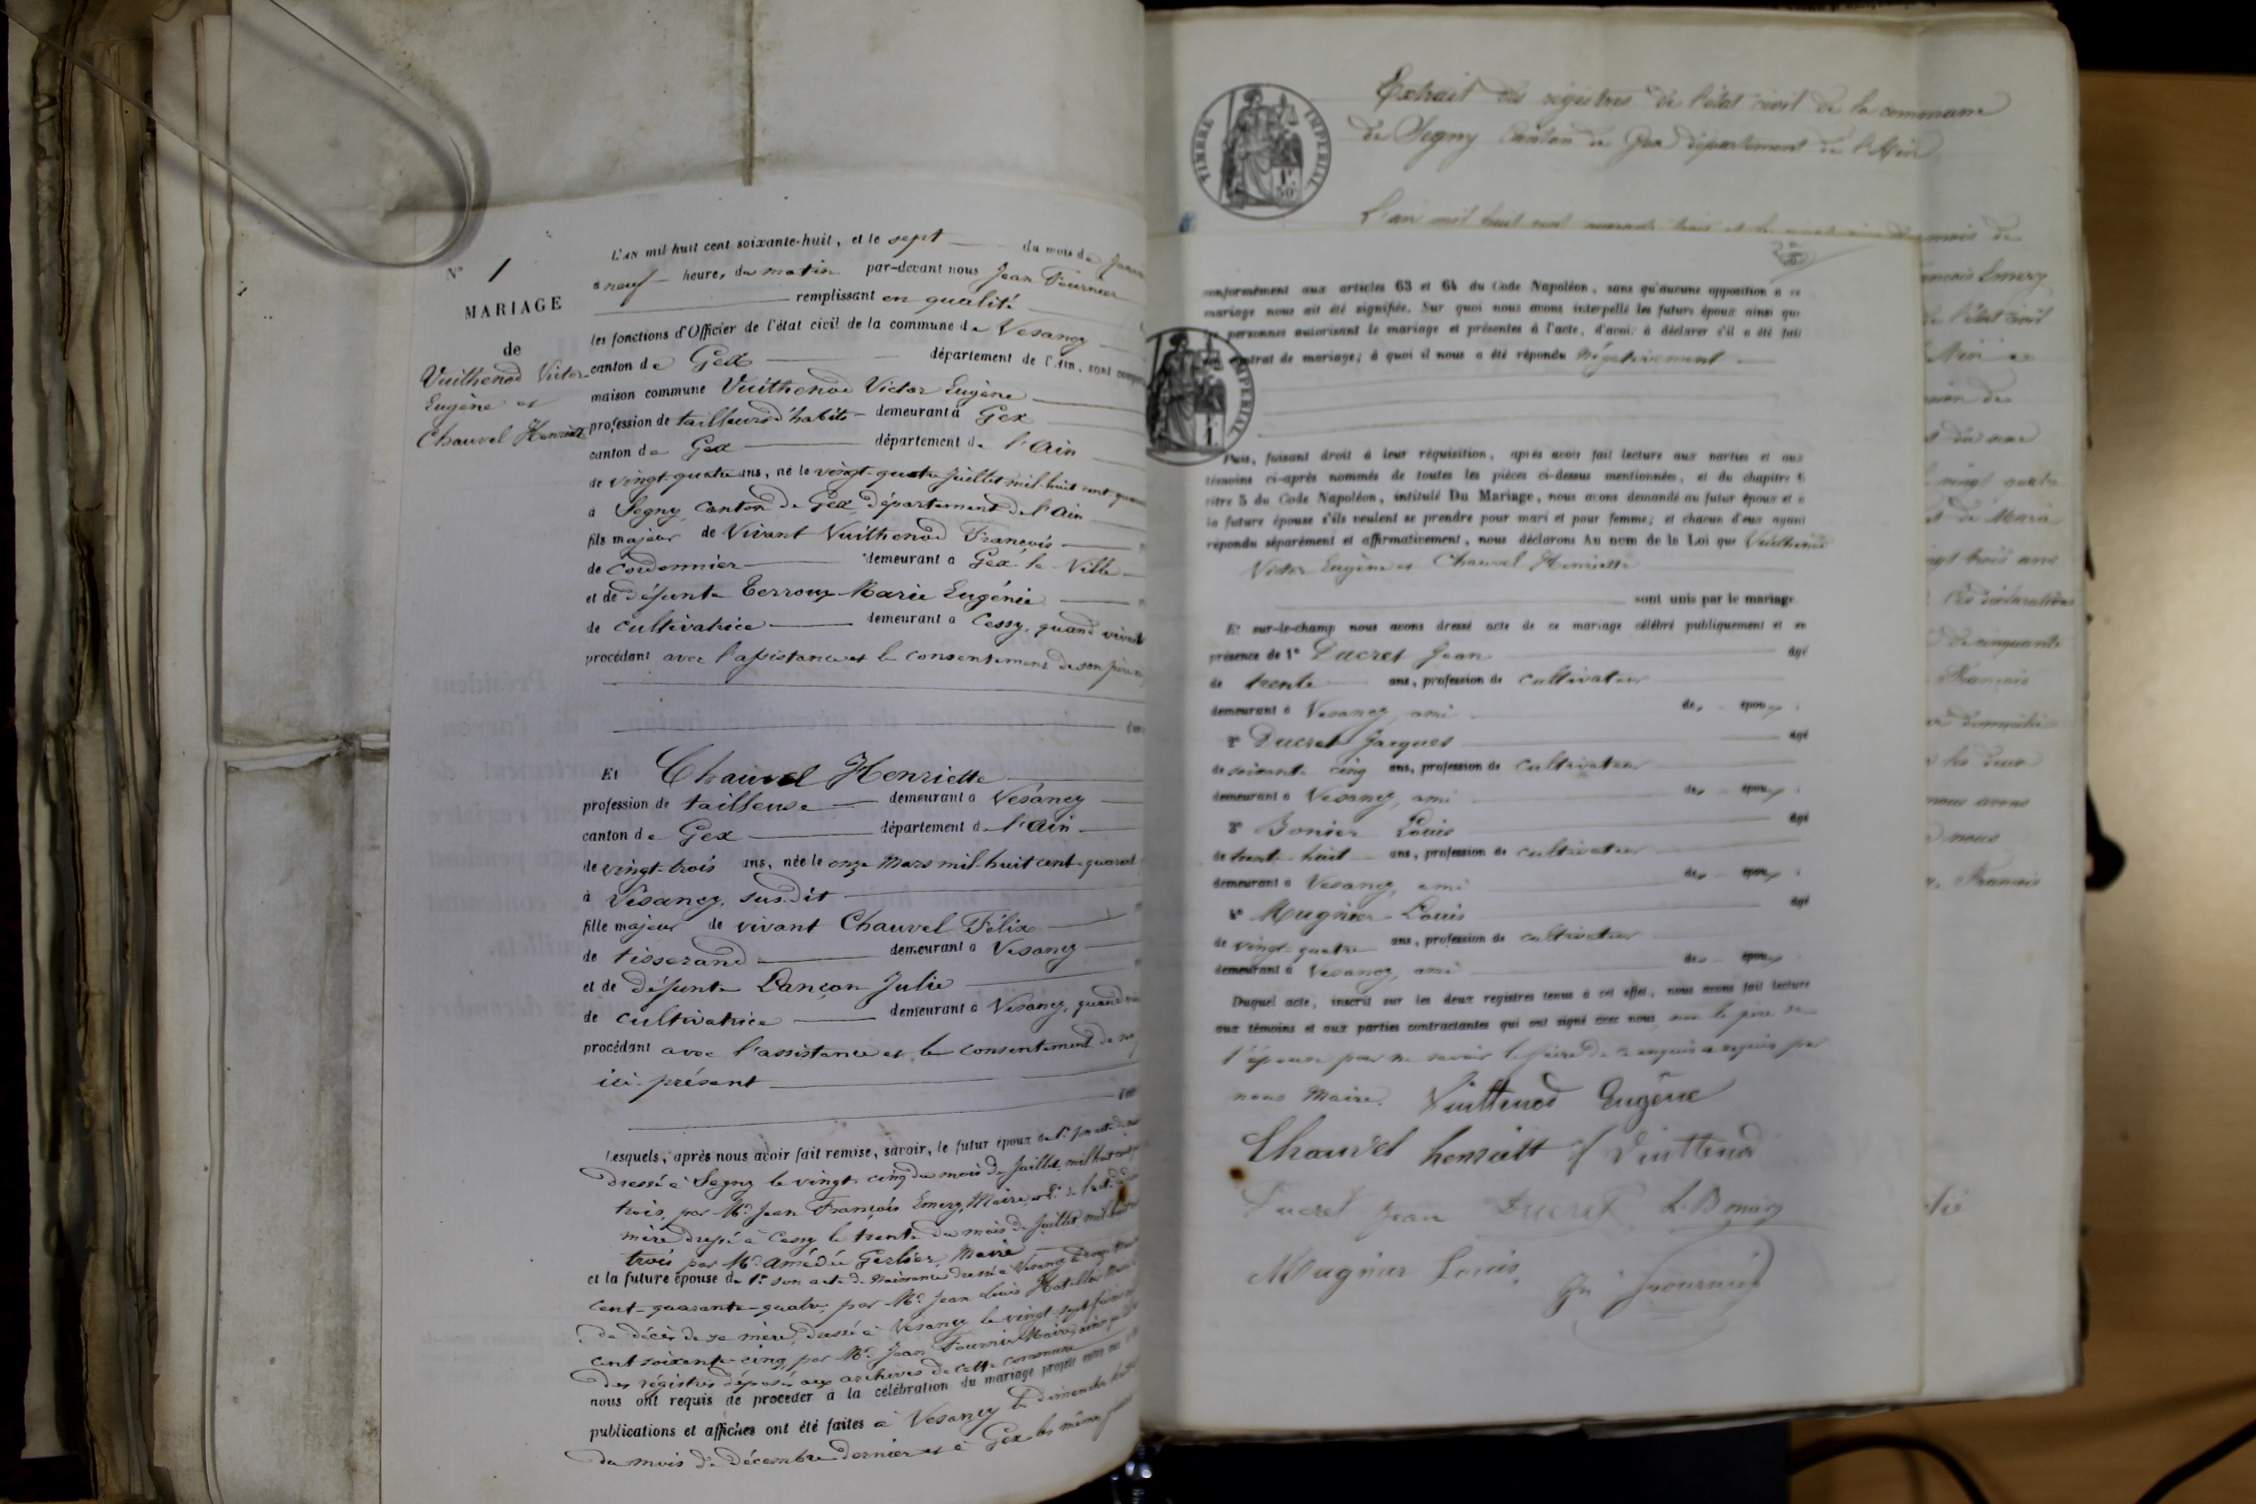 N° 1
MARIAGE
de
Vuithenod Victor
Eugène et
Chauvel Henriette
L'AN mil huit cent soixante-huit, et le sept du mois de
à neuf heures du matin par-devant nous Jean Fournier
remplissant en qualité
les fonctions d'Officier de l'état civil de la commune de Vesancy
canton de Gex département de l'Ain, sont
maison commune Vuithenod Victor Eugène
profession de tailleur d'habits demeurant à Gex
canton de Gex département de l'Ain
de vingt-quatre ans, né le vingt-quatre Juillet mil-huit cent
à Segny, Canton de Gex, département de l'Ain
fils majeur de Vivant Vuithenod François
de Cordonnier demeurant à Gex la Ville
et de défunte Terroux Marie Eugénie
de Cultivatrice demeurant à Cessy, quand vivait
procédant avec l'assistance et le consentement de son père
Et Chauvel Henriette
profession de tailleuse demeurant à Vesancy
canton de Gex département de l'Ain
de vingt-trois ans, née le onze Mars mil-huit cent
à Vesancy, susdit
fille majeur de vivant Chauvel Félix
de tisserand demeurant à Vesancy
et de défunte Lançon Julie
de cultivatrice demeurant à Vesancy, quand
procédant avec l'assistance et le consentement de
ici présent
Lesquels, après nous avoir fait remise, savoir, le futur époux de 1°
dressé à Segny le vingt-cinq du mois de Juillet mil huit cent
trois, par Mr. Jean François Emery, Maire, et 2° de l'acte
mère dressé à Cessy le trente du mois de Juillet mil huit
trois par Mr. Amédée Gerlier, Maire
et la future épouse de 1° son acte de naissance dressé à Vesancy
cent-quarante-quatre, par Mr. Jean Louis
de décès de sa mère, dressé à Vesancy le vingt-sept
cent soixante-cinq par Mr. Jean Fournier Maire
des régistres déposés aux archives de cette commune
nous ont requis de procéder à la célébration du mariage projeté entre
publications et affiches ont été faites à Vesancy le dimanche
du mois de Décembre dernier et à Gex les même
TIMBRE IMPERIAL
1F
50C
Extrait des régistres de l'état civil de la commune
de Segny Canton de Gex département de l'Ain
L'an mil huit cent quarante trois et le
conformément aux articles 63 et 64 du Code Napoléon, sans qu'aucune opposition à ce
mariage nous ait été signifiée. Sur quoi nous avons interpellé les futurs époux ainsi que
les personnes autorisant le mariage et présentes à l'acte, d'avoir à déclarer s'il a été fait
contrat de mariage; à quoi il nous a été répondu Négativement
IMPERIAL
Puis, faisant droit à leur réquisition, après avoir fait lecture aux parties et aux
témoins ci-après nommés de toutes les pièces ci-dessus mentionnées, et du chapitre 6
titre 5 du Code Napoléon, intitulé Du Mariage, nous avons demandé au futur époux et à
la future épouse s'ils veulent se prendre pour mari et pour femme; et chacun d'eux ayant
répondu séparément et affirmativement, nous déclarons Au nom de la Loi que Vuithenod
Victor Eugène et Chauvel Henriette
sont unis par le mariage
Et sur-le-champ nous avons dressé acte de ce mariage célébré publiquement et en
présence de 1° Ducret Jean âgé
de trente ans, profession de cultivateur
demeurant à Vesancy, ami des époux
2° Ducret Jacques âgé
de soixante cinq ans, profession de cultivateur
demeurant à Vesancy, ami des époux
3° Bonier Louis âgé
de trente-huit ans, profession de cultivateur
demeurant à Vesancy, ami des époux
4° Mugnier Louis âgé
de vingt-quatre ans, profession de cultivateur
demeurant à Vesancy, ami des époux
Duquel acte, inscrit sur les deux registres tenus à cet effet, nous avons fait lecture
aux témoins et aux parties contractantes qui ont signé avec nous, non le père de
l'épouse pour ne savoir le faire de ce enquis et requis par
nous Maire. Vuittenod Eugène
Chauvel henriett f Vuittenod
Ducret Jean Ducret L Bonier
Mugnier Louis
Fournier
mois de
Emery
l'état civil
vingt quatre
de Maria
vingt trois ans
de cinquante
François
domicilié
les deux
nous avons
nous
François